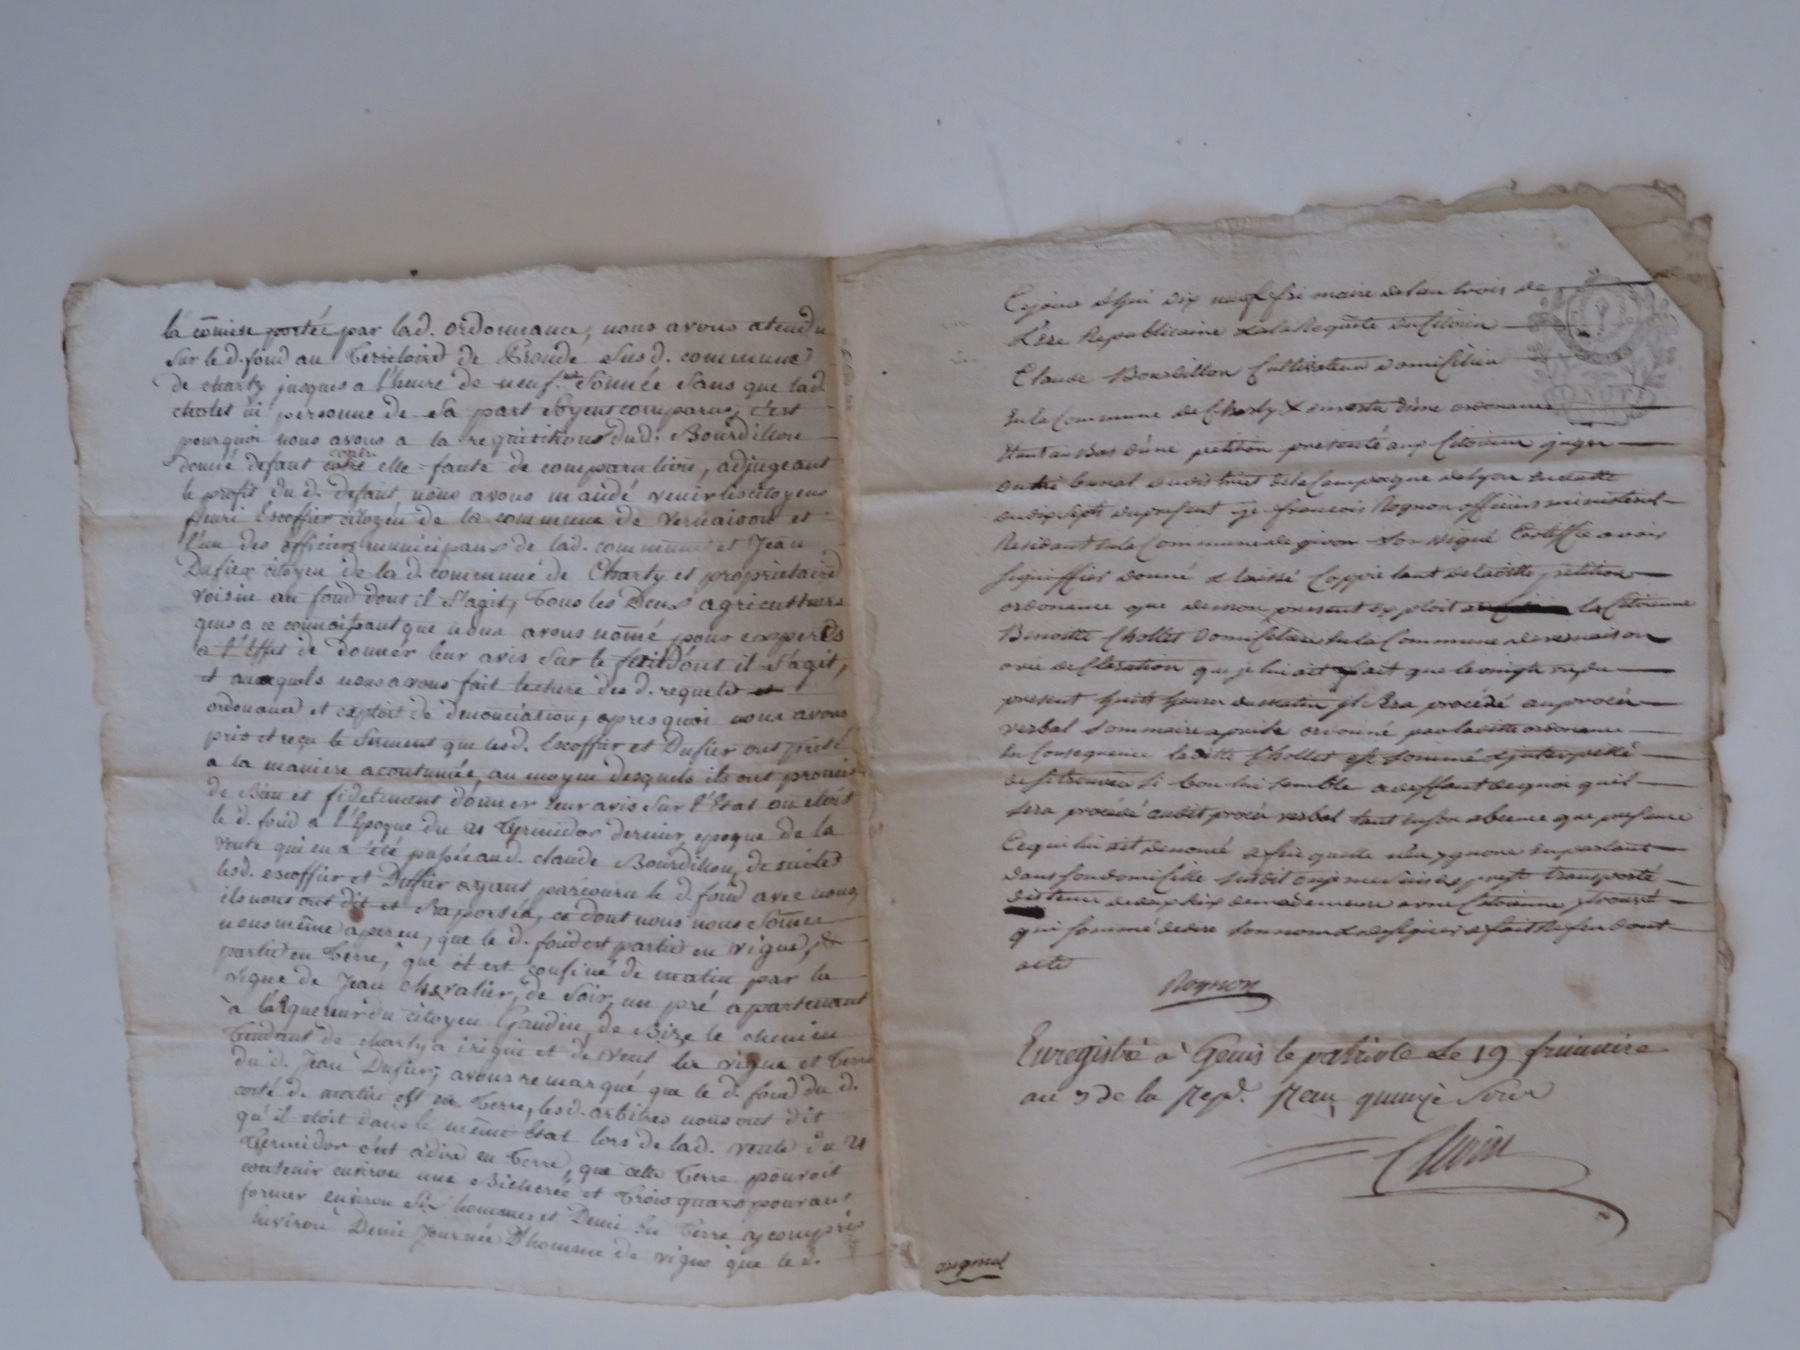 la comise portée par lad. ordonnance, nous avons atendu
sur le d. fond au Territoire de susd. commune
de charly jusques a l'heure de neuf sonnée sans que lad.
cholet ni personne de sa part soyent comparus, c'est
pourquoi nous avons a la requisition dud. Bourdillon
donné defaut contre elle faute de comparution, adjugeant
le profit du d. defaut, nous avons mandé venir les citoyens
henri Escoffier citoyen de la commune de vernaison et
l'un des officiers municipaux de lad. commune et Jean
Dufier citoyen de la d. commune de Charly et propriétaire
voisin au fond dont il s'agit, Tous les Deux agriculteurs
gens a ce connoissant que nous avons nomé pour experts
a l'Effet de donner leur avis sur le fait dont il s'agit,
et auxquels nous avons fait lecture des d. requete et
ordonance et exploit de denonciation, apres quoi nous avons
pris et reçu le serment que lesd. Escoffier et Dufier ont prété
a la maniere acoutumée, au moyen desquels ils ont promis
de Bien et fidelement donner leur avis sur l'Etat ou etoit
le d. fond a l'Epoque du 21 Thermidor dernier epoque de la
vente qui en a été passée aud. claude Bourdillon, de suite
lesd. escoffier et Duffier ayant parcouru le d. fond avec nous,
ils nous ont dit et raporté, ce dont nous nous sommes
nous même aperçu, que le d. fond est partie en vigne, &
partie en Terre, que il est confiné de matin par la
vigne de Jean chevalier, de soir, un pré apartenant
à du citoyen Gaudin, de Bize le chemin
Tendant de charly a irigni et de vent les vigne et Terre
du d. Jean Dufier, avons remarqué que le d. fond du d.
coté de matin est en Terre, les d. arbitres nous ont dit
qu'il etoit dans le même Etat lors de lad. vente du 21
Thermidor c'est a dire en Terre, que cette Terre pouvoit
contenir environ une Bicherée et Trois quars pouvant
former environ six hommes et Demi En Terre y compris
Environ Demie Journée D'homme de vigne que le d.
Cejourd'hui dix neuf frimaire de lan trois de
L'ere Republicaine a la Requête du Citoien
Claude Bourdillon Cultivateur domicilié
En la Commune de Charly & en vertu d'une ordonance
Etant au Bas d'une petition presenté aux Citoiens juges
du tribunal du district de la Campagne de lyon en datte
du dix sept du present je francois Rognon officier ministeriel
Residant En la Commune de givors soussigné Certiffie avoir
signiffier donné & laissé Coppie tant de laditte petition
ordonance que de mon present exploit a la Citoienne
Benoitte Chollet domiciliée En la Commune de vernaison
avec declaration que je lui ait fait que le vingt un du
present huit heures du matin il sera procédé au procès
verbal sommaire aprise ordonné par laditte ordonance
En Consequence laditte Chollet est sommé & interpellé
de si trouver si bon lui semble a deffaut de quoi qu'il
sera procédé audit procès verbal tant en son absence que presence
Ce que lui ait denoncé afin quelle n'en ygnore En parlant
dans son domicille susdit ou je me suis Exprest transporté
distance de deux de ma demeure a une Citoienne y trouvé
qui sommé de dire son nom & de signer a fait Refus dont
acte
Rognon
Enregistré à Genis le patriote Le 19 frimaire
an 3 de la Rep. Reçu quinze sous
original